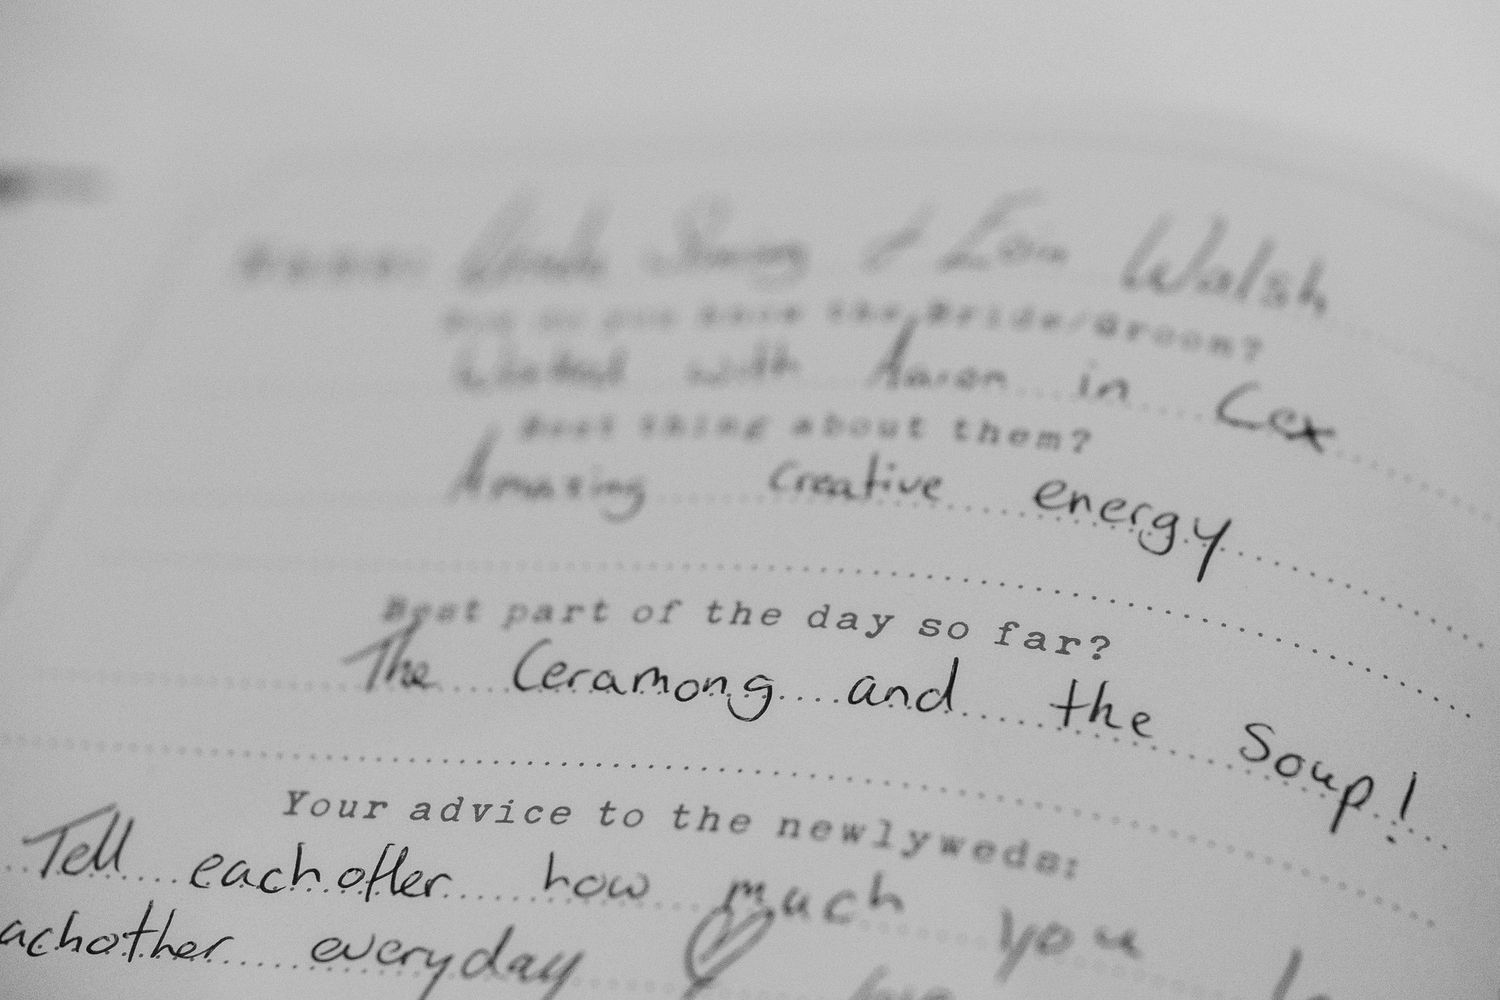 & Eoin Walsh
How do you know the Bride/Groom?
Worked with Aaron in Cex
Best thing about them?
Amazing creative energy
Best part of the day so far?
The Ceramong and the Soup!
Your advice to the newlyweds:
Tell eachother how much you
achother everyday